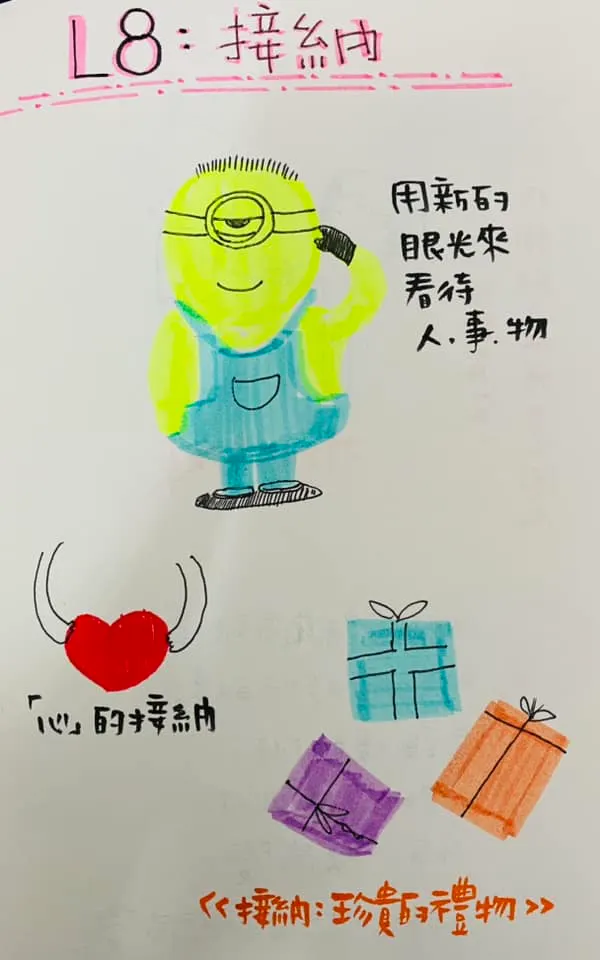 L8:接納
用新的
眼光來
看待
人.事.物
「心」的接納
<<接納:珍貴的禮物>>